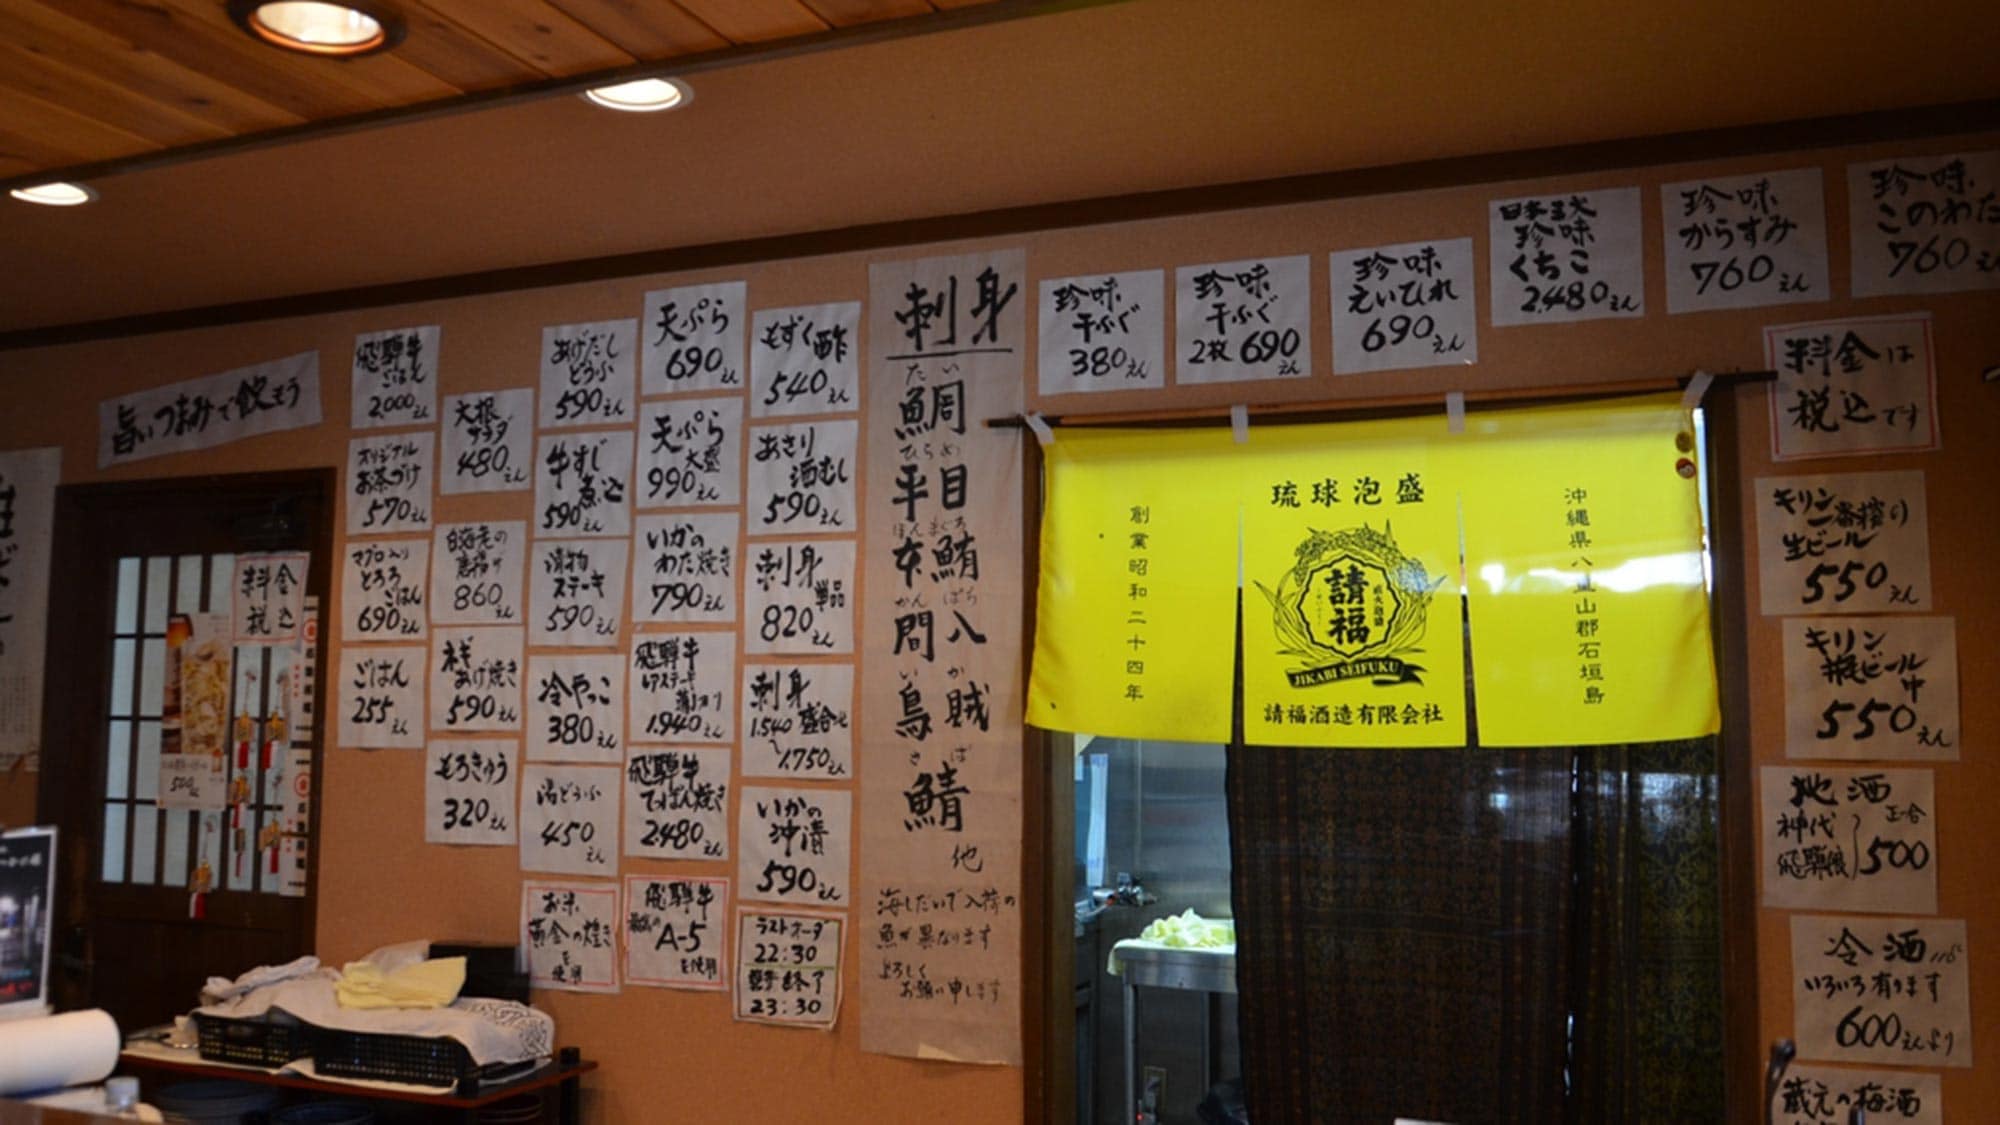 旨いつまみで飲もう
料金
税込
500
飛騨牛
ごはん
2,000えん
オリジナル
お茶づけ
570えん
マグロ入り
とろろ
ごはん
690えん
ごはん
255えん
大根
サラダ
480えん
白海老の
唐揚げ
860えん
ネギ
あげ焼き
590えん
もろきゅう
320えん
あげだし
とうふ
590えん
牛すじ
煮込
590えん
漬物
ステーキ
590えん
冷やっこ
380えん
湯どうふ
450えん
お米
黄金の煌き
を
使用
天ぷら
690えん
天ぷら
大盛
990えん
いかの
わた焼き
790えん
飛騨牛
レアステーキ
1,940えん
飛騨牛
てっぱん焼き
2,480えん
飛騨牛
A-5
を使用
もずく酢
540えん
あさり
酒むし
590えん
刺身
単品
820えん
刺身
1,540 盛合せ
〜1,750えん
いかの
沖漬
590えん
ラストオーダー
22:30
営業終了
23:30
刺身
たい
鯛
ひらめ
平目
ほんまぐろ
本鮪
かんぱち
間八
いか
烏賊
さば
鯖
他
海しだいで入荷の
魚が異なります
よろしく
お願い申します
珍味
干ふぐ
380えん
珍味
干ふぐ
2枚 690えん
珍味
えいひれ
690えん
日本三大
珍味
くちこ
2,480えん
珍味
からすみ
760えん
珍味
このわた
760え
琉球泡盛
創業昭和二十四年
直火泡盛
請福
JIKABI SEIFUKU
請福酒造有限会社
沖縄県八重山郡石垣島
料金は
税込です
キリン
一番搾り
生ビール
550えん
キリン
瓶ビール
中
550えん
地酒
正一合
神代
飛騨娘
500
冷酒
いろいろ有ります
600えんより
蔵元の梅酒